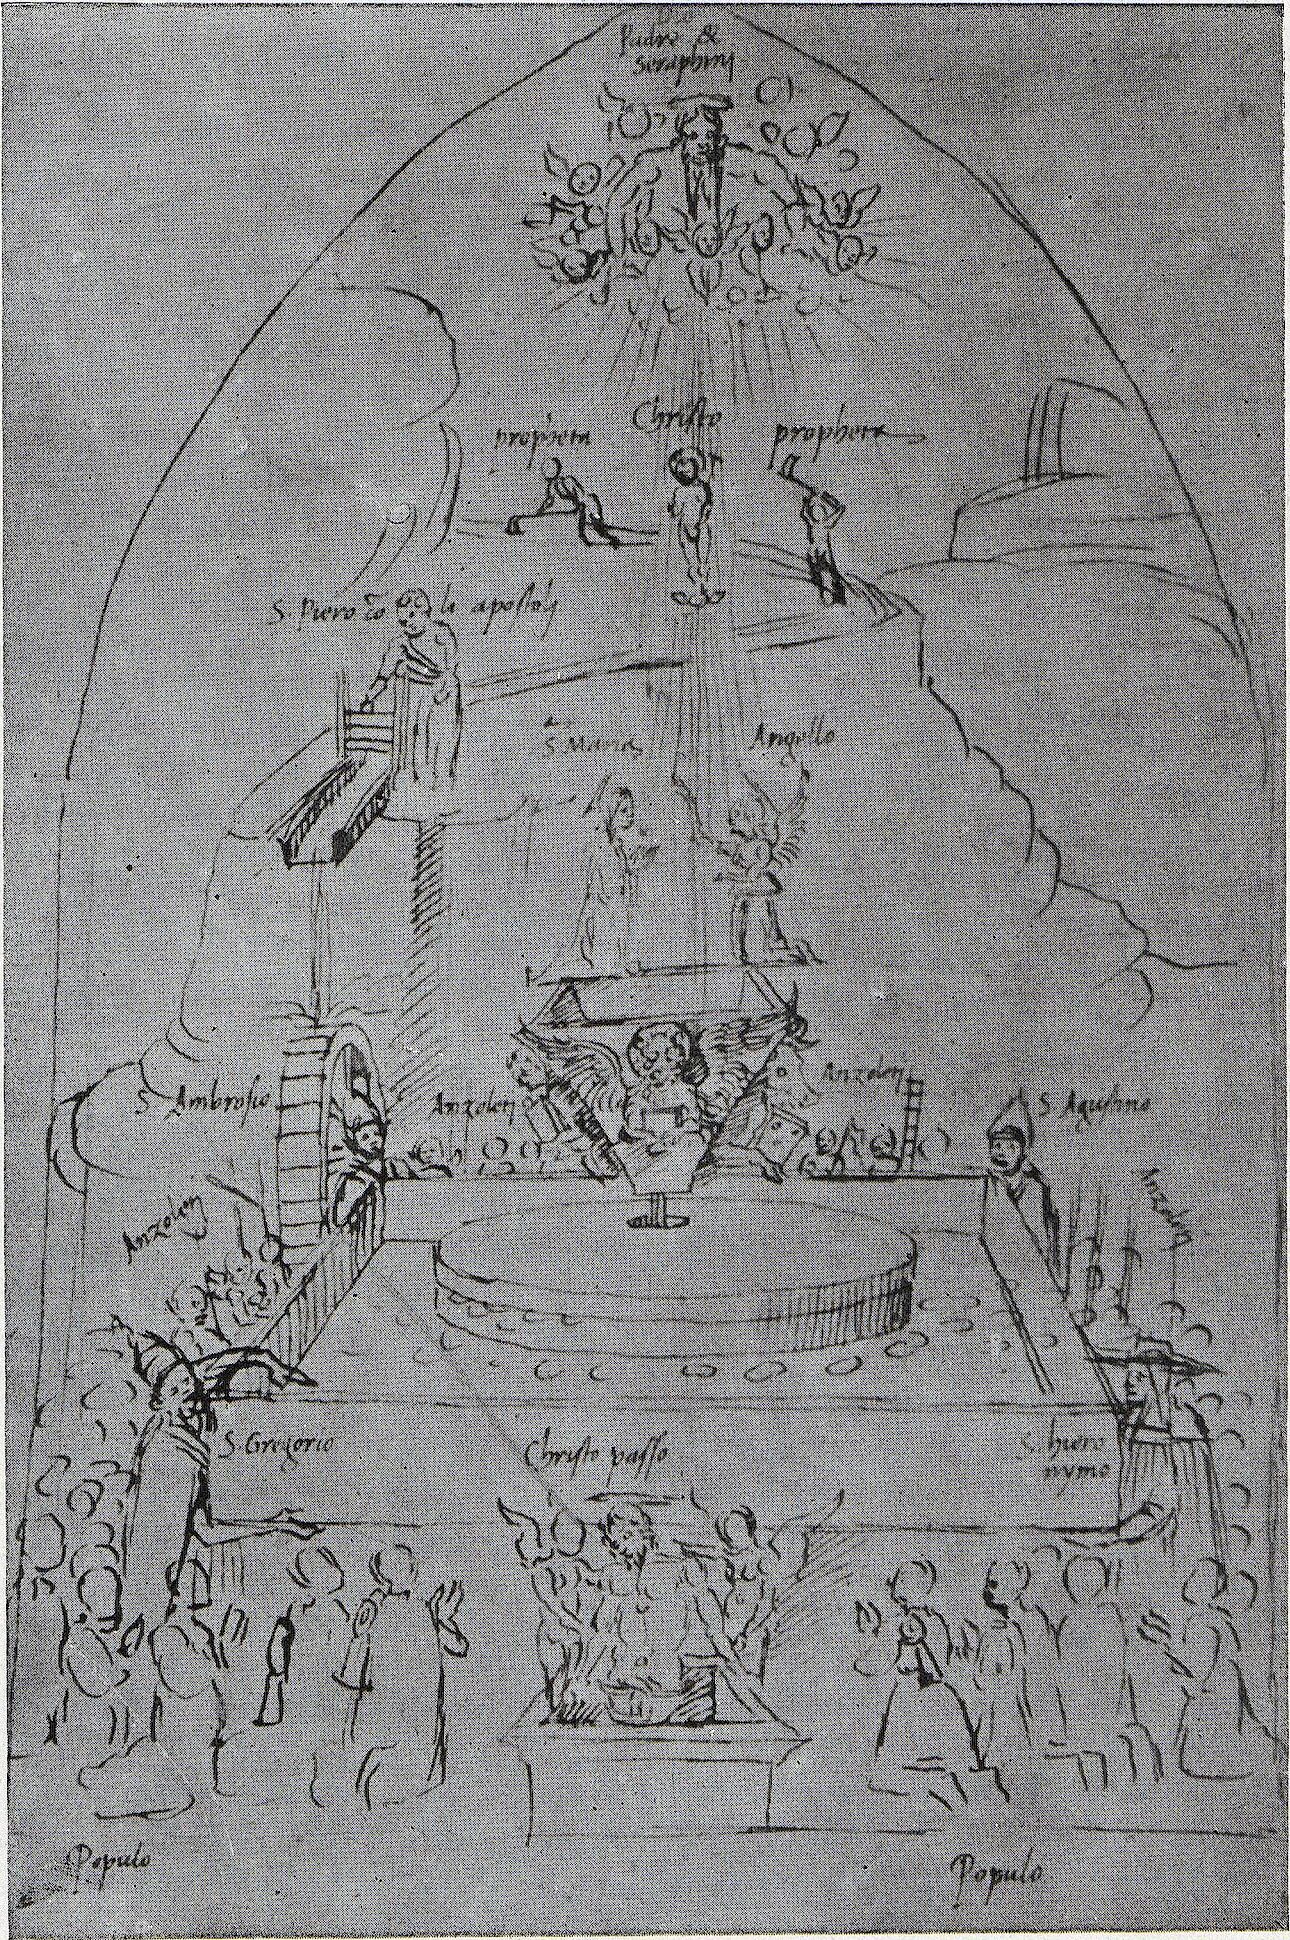 Dio
Padre &
seraphinj
propheta
Christo
propheta
S. Piero cō li apostolj
S. Maria
Angello
S. Ambrosio
Anzolerj
Anzolerj
S. Agustino
Anzolerj
Anzolerj
S. Gregorio
Christo passo
S. hiero
nymo
Populo
Populo